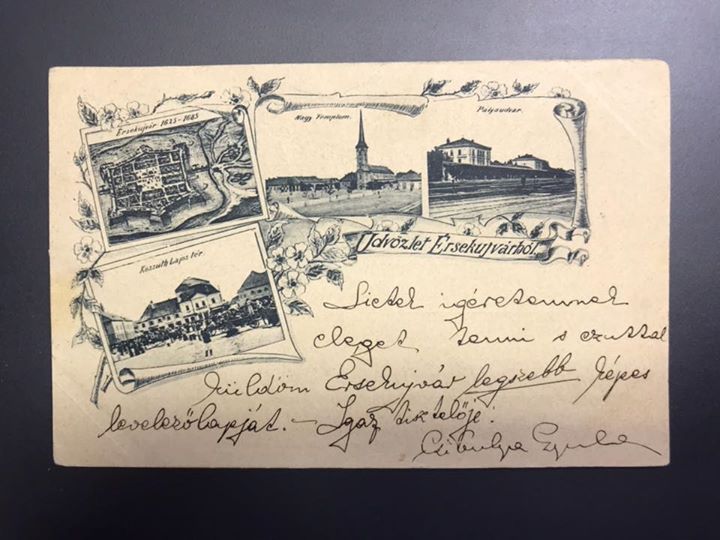 Érsekujvár 1625-1685
Nagy Templom.
Pályaudvar.
Üdvözlet Érsekujvárból.
Kossuth Lajos tér.
Sietek igéretemnek
eleget tenni s ezuttal
küldöm Érsekujvár legszebb képes
levelezőlapját. – Igaz tisztelője:
Gyula